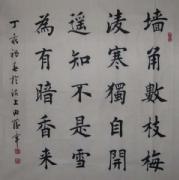 墻角數枝梅
凌寒獨自開
遥知不是雪
為有暗香来
丁亥初春於